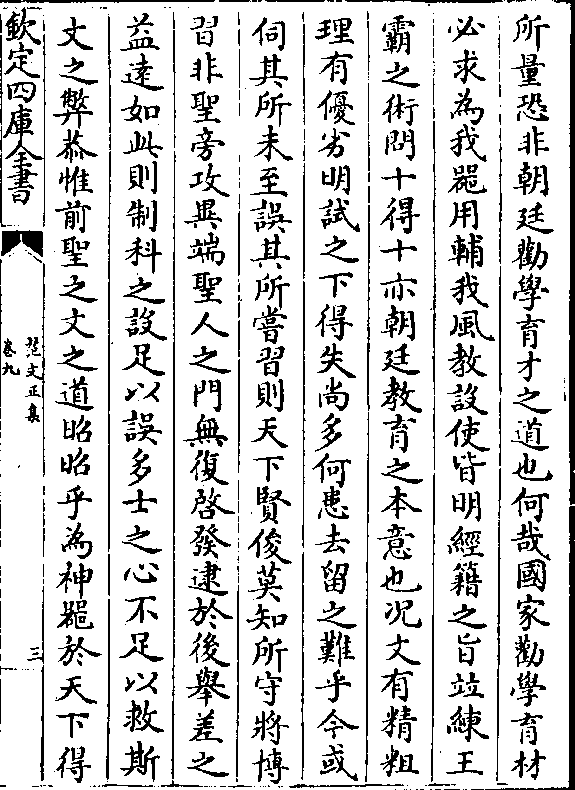 所量恐非朝廷勸學育才之道也何哉國家勸學育材
必求為我器用輔我風教設使皆明經籍之旨竝練王
霸之術問十得十亦朝廷教育之本意也况文有精粗
理有優劣明試之下得失尚多何患去留之難乎今或
伺其所未至誤其所嘗習則天下賢俊莫知所守將博
習非聖旁攻異端聖人之門無復啓發逮於後舉差之
益逺如此則制科之設足以誤多士之心不足以救斯
文之弊恭惟前聖之文之道昭昭乎為神器於天下得
欽定四庫全書
范文正集
卷九
三